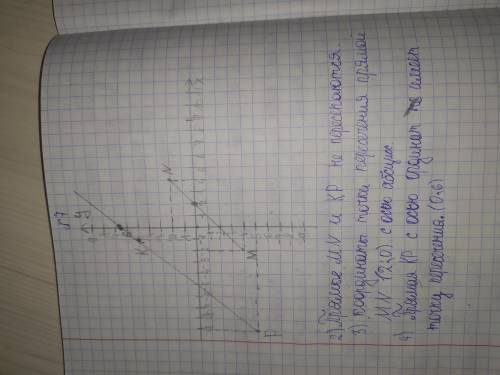 №7
y
N
K
M
P
2) Прямые MN и KP не пересекаются.
3) координаты точки пересечения прямой
MN (2;0) с осью абсцисс
4) Прямая KP с осью ординат имеет
точку пересечения. (0;6)